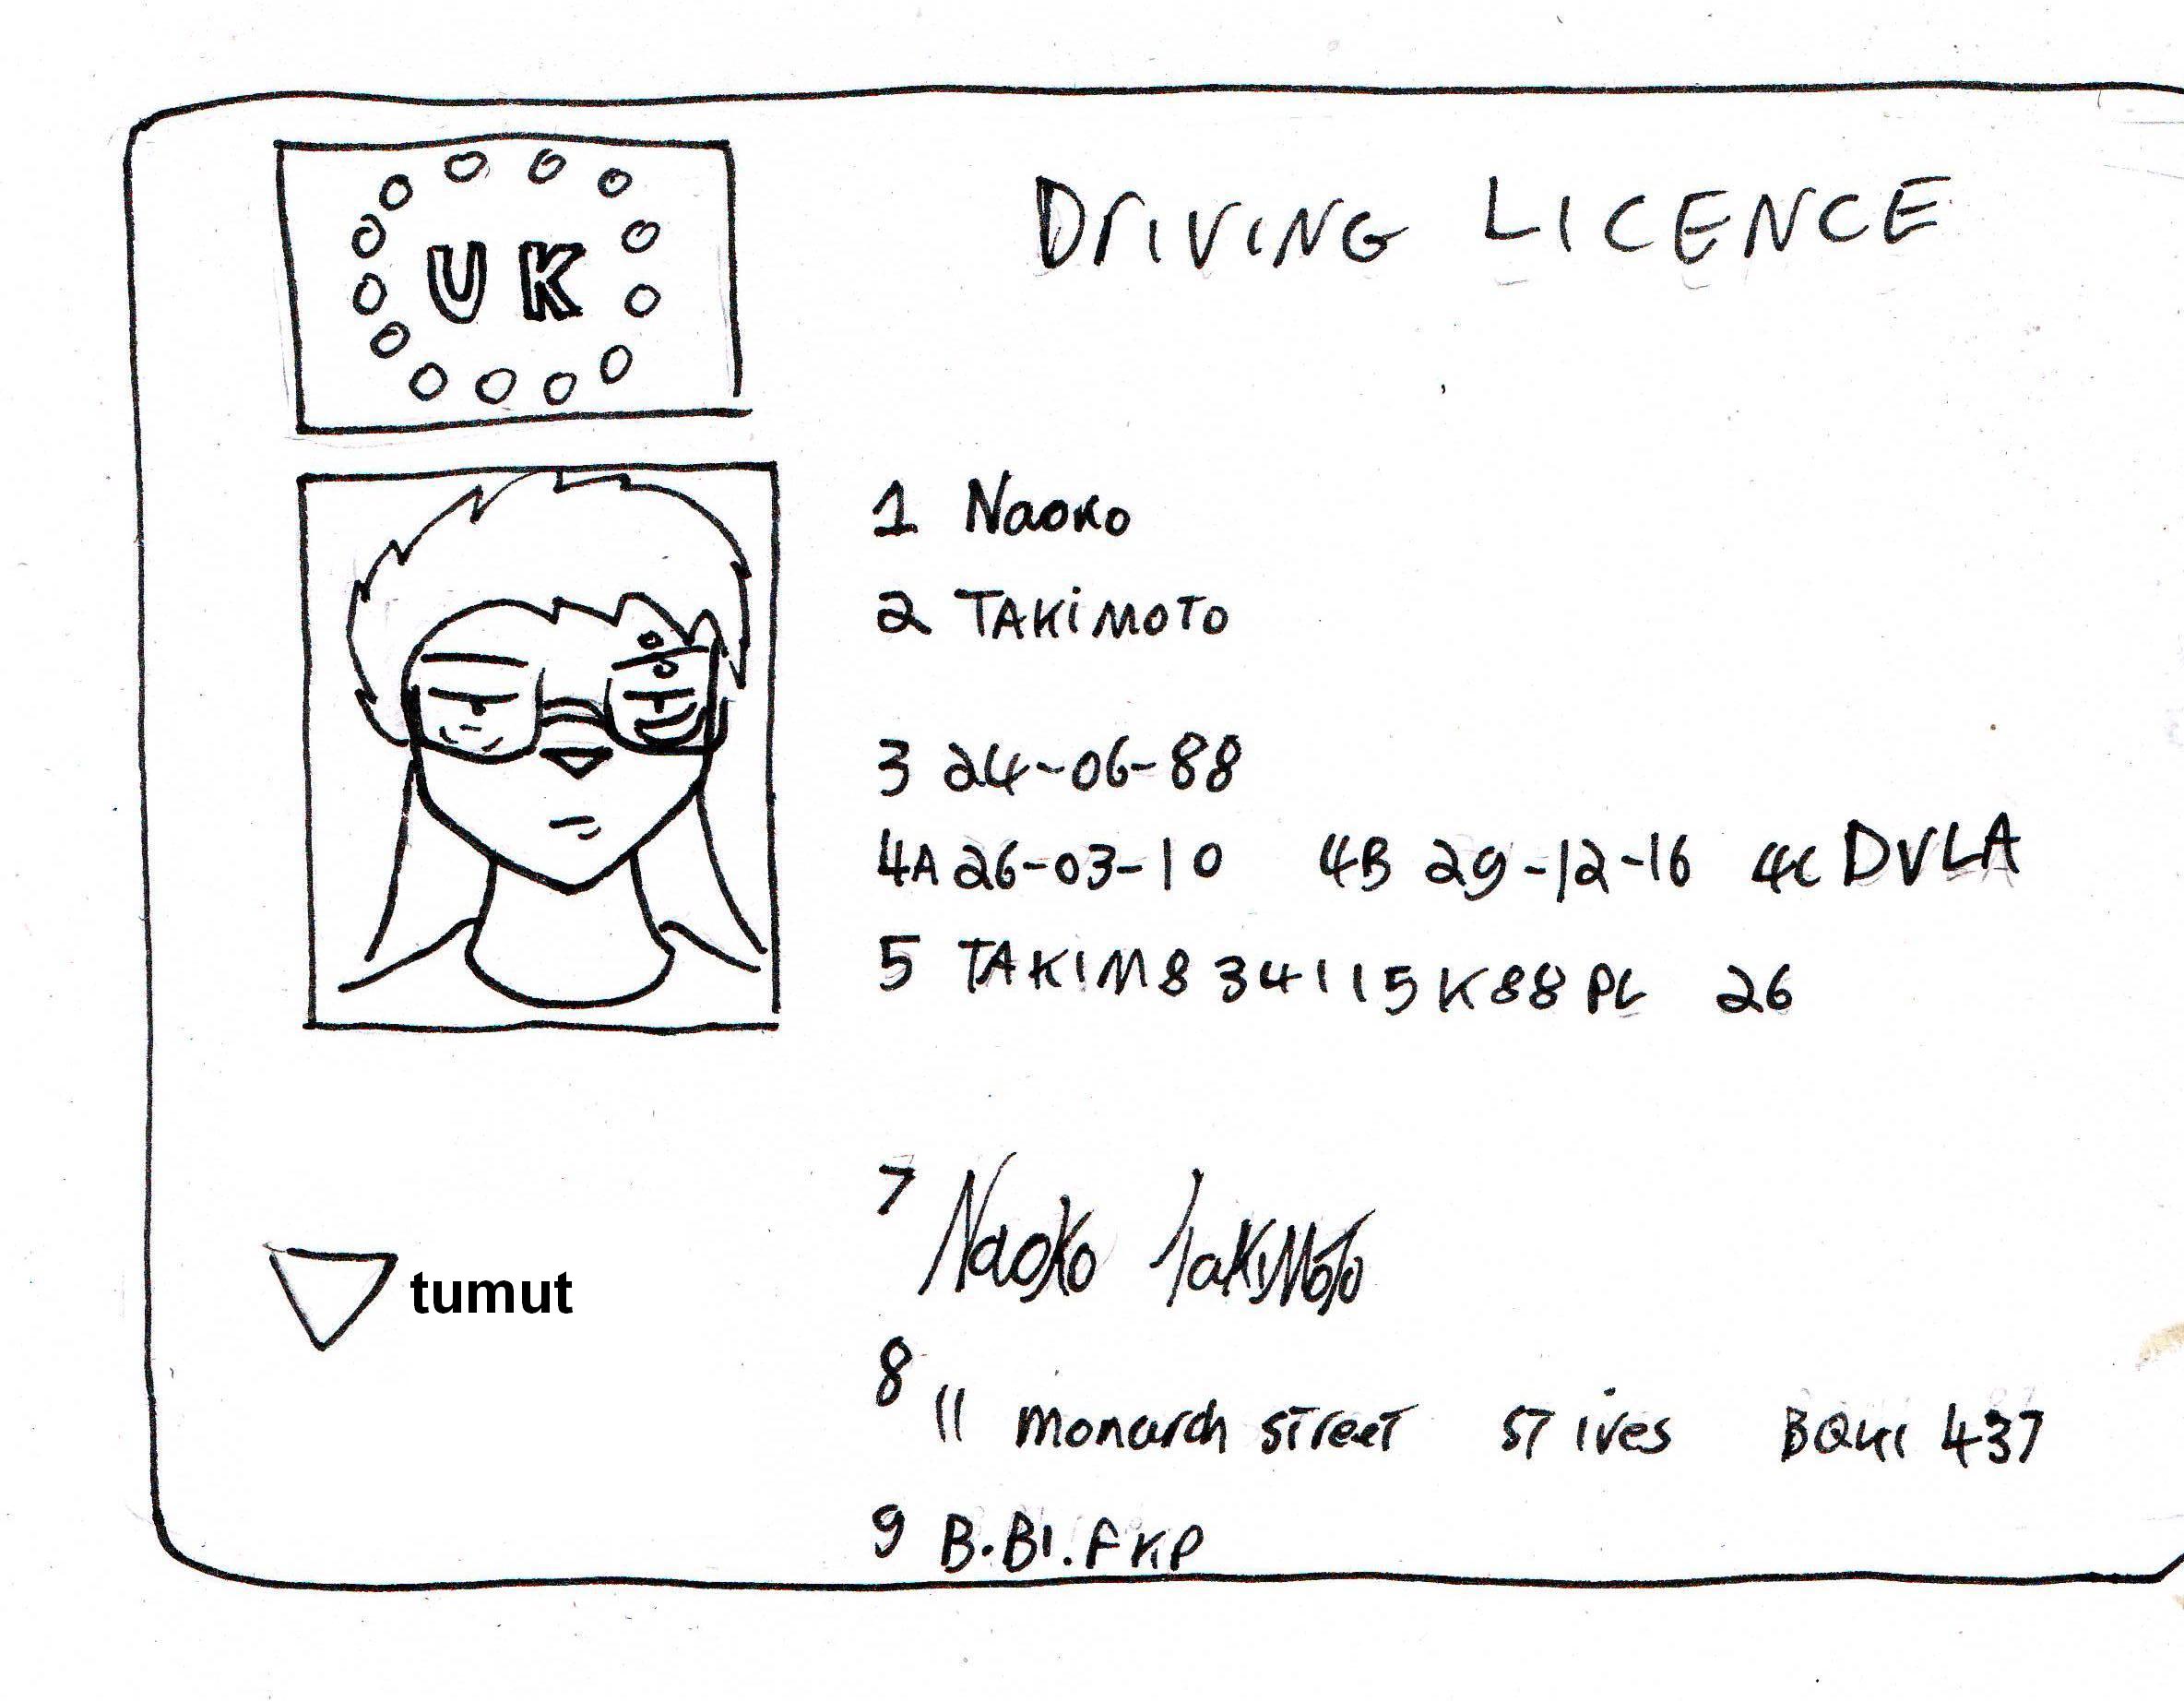 UK
DrIVING LICENCE
1 Naoko
2 TAKiMOTO
3 24-06-88
4A 26-03-10 4B 29-12-16 4C DVLA
5 TAKIM834115K88PL 26
7 Naoko TakiMoto
tumut
8 11 monarch street ST ives 437
9 B.B1.FKP